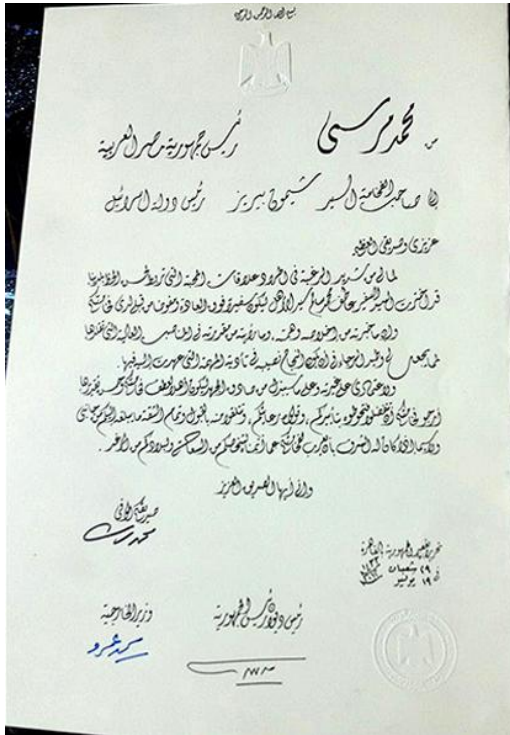 بسم الله الرحمن الرحيم
من محمد مرسى رئيس جمهورية مصر العربية
إلى صاحب الفخامة السيد شيمون بيريز رئيس دولة اسرائيل
عزيزى وصديقى العظيم
لما لى من شديد الرغبة فى اطراد علاقات المحبة التى تربط لحسن الحظ بلدينا
قد اخترت السيد السفير عاطف محمد سالم سيد الأهل ليكون سفيرا فوق العادة ومفوضا من قبلى لدى فخامتكم
وإن ما خبرته من اخلاصه وهمته وما رأيته من مقدرته فى المناصب العالية التى تقلدها
مما يجعل لى وطيد الرجاء فى أن يكون النجاح نصيبه فى تأدية المهمة التى عهدت إليه فيها
ولاعتمادى على غيرته وعلى ما سيبذل من صادق الجهد ليكون أهلا لعطف فخامتكم وحسن تقديرها
أرجو من فخامتكم أن تتفضلوا فتحوطوه بتأييدكم وتولوه رعايتكم وتتلقوا منه بالقبول وتمام الثقة ما يبلغه إليكم من جانبى
ولا سيما إذا كان له الشرف بأن يعرب لفخامتكم عما أتمناه لشخصكم من السعادة ولبلادكم من الرغد
وإنى أيها الصديق العزيز
صديقكم الوفى
محمد مرسى
تحريرا بقصر الجمهورية بالقاهرة
فى ٢٩ شعبان ١٤٣٣
فى ١٩ يوليو ٢٠١٢
رئيس ديوان رئيس الجمهورية
وزير الخارجية